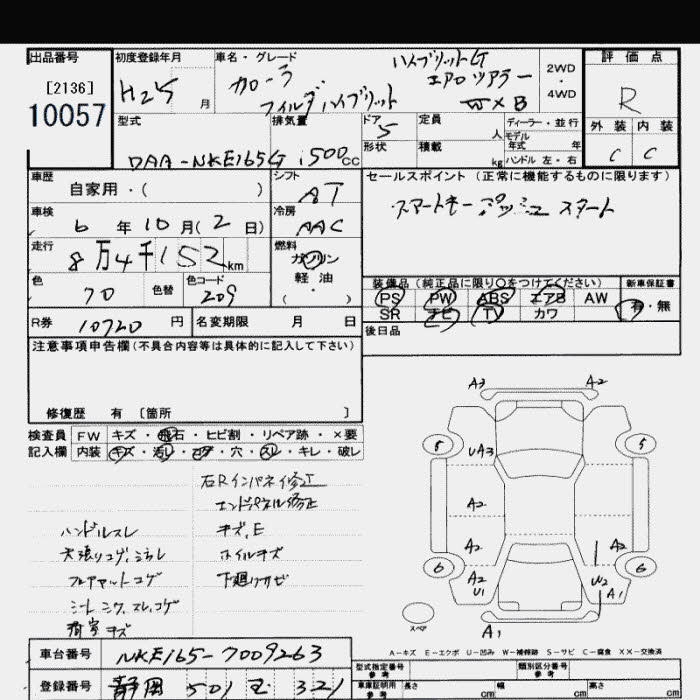 出品番号
[2136]
10057
初度登録年月
H25 月
車名・グレード
カローラ
フィルダーハイブリット
ハイブリットG
エアロツアラー
W×B
2WD
・
4WD
評価点
R
外装 内装
C C
型式
DAA-NKE165G
排気量
1500cc
ドア
5
形状
定員
人
積載
kg
ディーラー・並行
モデル
年式 年
ハンドル 左・右
車歴
自家用・( )
シフト
AT
車検
6年10月(2日)
冷房
AAC
走行
8万4千152km
燃料
ガソリン
軽・油
・
( )
色
70
色替
色コード
209
R券 10720円
名変期限 月 日
セールスポイント(正常に機能するものに限ります)
スマートキー プッシュスタート
装備品(純正品に限り〇をつけてください)
新車保証書
PS PW ABS エアB AW
SR ナビ TV カワ
有・無
後日品
注意事項申告欄(不具合内容等は具体的に記入して下さい)
修復歴 有 〔箇所 〕
検査員
記入欄
FW キズ・飛石・ヒビ割・リペア跡・×要
内装 キズ・汚れ・コゲ・穴・スレ・キレ・破レ
右Rインパネ修正
エンドパネル修正
ハンドルスレ
キズ,E
天張りコゲ,
ホイルキズ
フロアマットコゲ
下廻りサビ
シートシワ,スレ,コゲ
荷室キズ
A3 A2
5 5
UA3
A2
A2 A2
6 6
A2
U1
W2
A1
スペア
A1
A-キズ E-エクボ U-凹み W-補修跡 S-サビ C-腐食 XX-交換済
車台番号 NKE165-7009263
登録番号 静岡 501 321
型式指定番号
参考
類別区分番号
参考
車庫証明用
参考
長さ cm
幅 cm
高さ cm